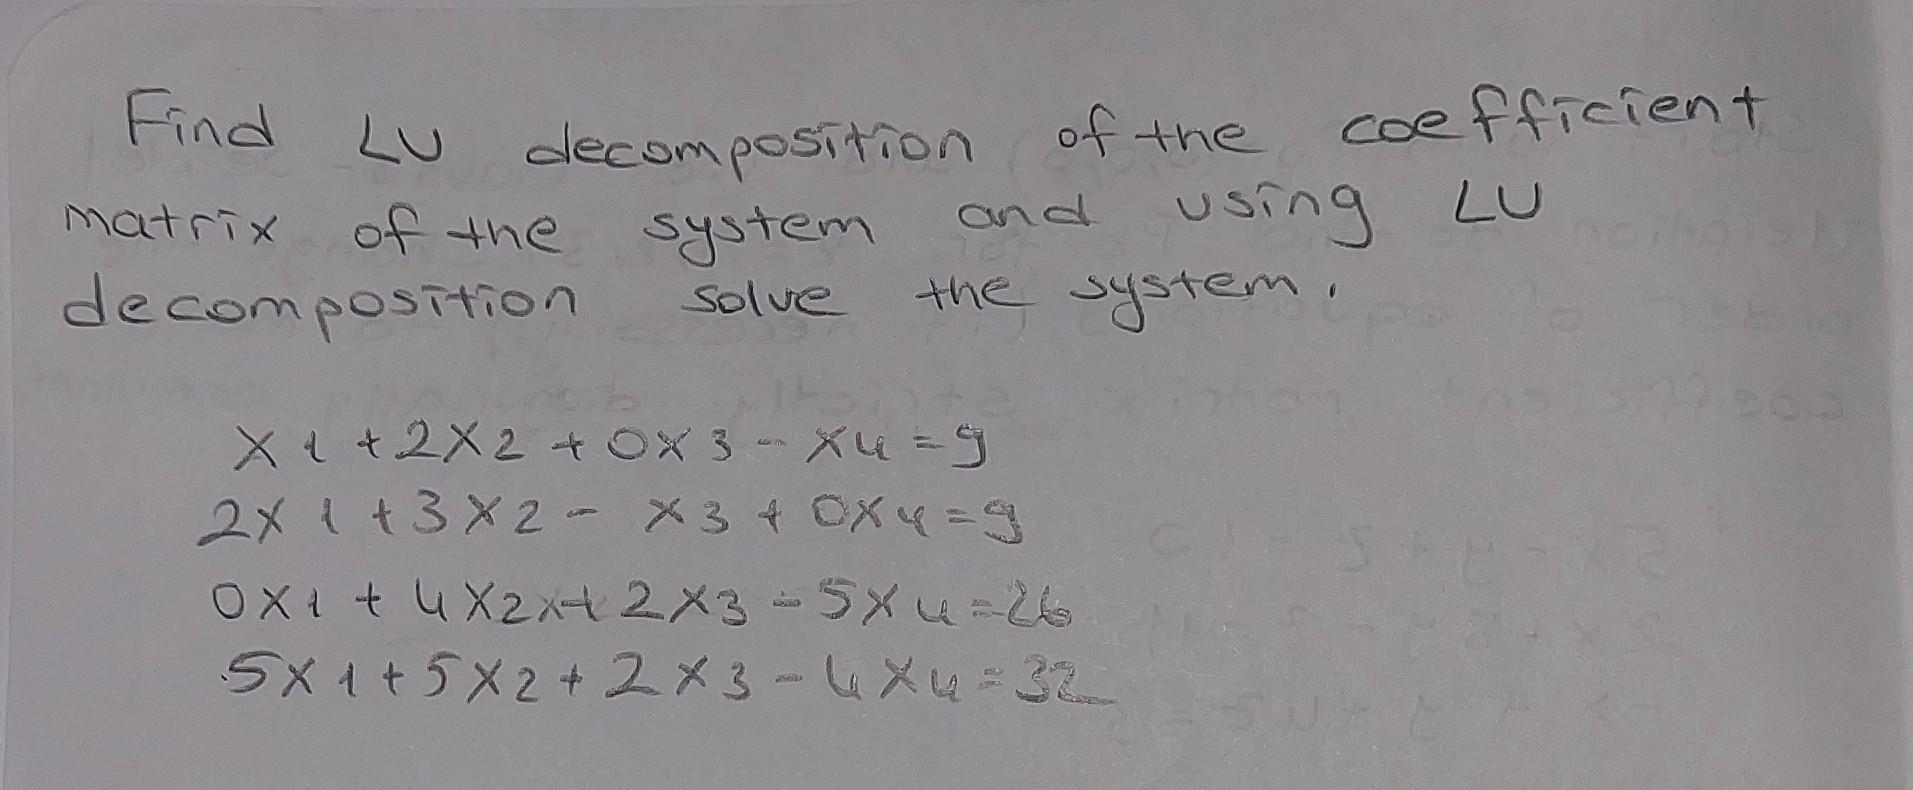 Find LU decomposition of the coefficient
matrix of the system and using LU
decomposition solve the system.
x1+2x2+0x3-x4=9
2x1+3x2-x3+0x4=9
0x1+4x2+2x3-5x4=26
5x1+5x2+2x3-4x4=32